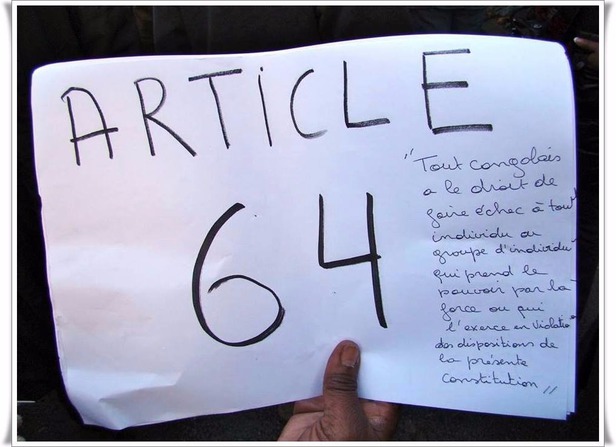 ARTiCLE
64
"Tout congolais
a le droit de
faire échec à tout
individu ou
groupe d'individu
qui prend le
pouvoir par la
force ou qui
l'exerce en violation
des dispositions de
la présente
constitution"